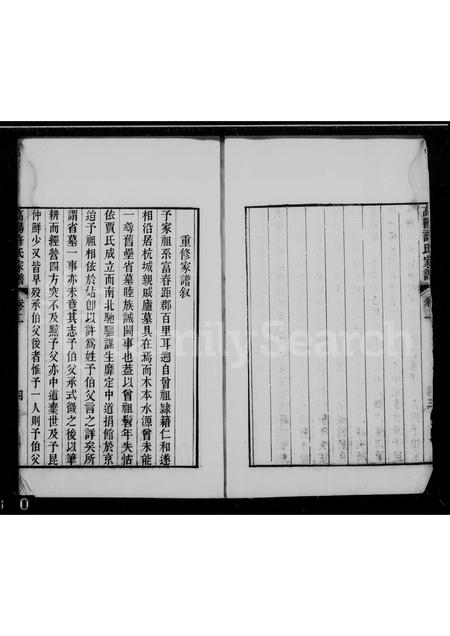 重修家譜叙
予家祖系富春距郡百里耳逈自曾祖隷籍仁和遂
相沿居杭城親戚廬墓具在焉而木本水源曾未能
一尋舊壘省墓睦族誠闕事也蓋以曾祖髫年失怙
依賈氏成立而南北馳驅謀生靡定中道捐館於京
迨予祖相依於姑卽以許爲姓予伯父言之詳矣所
謂省墓一事亦未竟其志予伯父承式微之後以筆
耕而經營四方突不及黔予父亦中道棄世及予昆
仲鮮少又皆早歿承伯父後者惟予一人則予伯父
高陽許氏家譜 卷一 四
高陽許氏家譜 卷一 三
FamilySearch
0